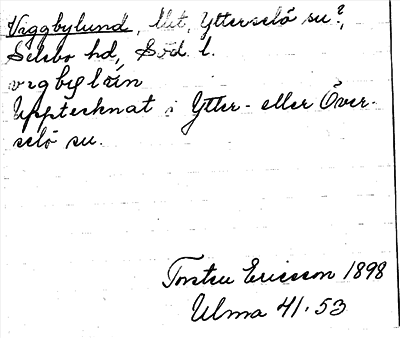 Viggbylund, Ytterselö su?,
Selebo hd, Söd l.
vigbylön
Upptecknat i Ytter- eller Över-
selö su.
Torsten Ericsson 1898
Ulma 41.53